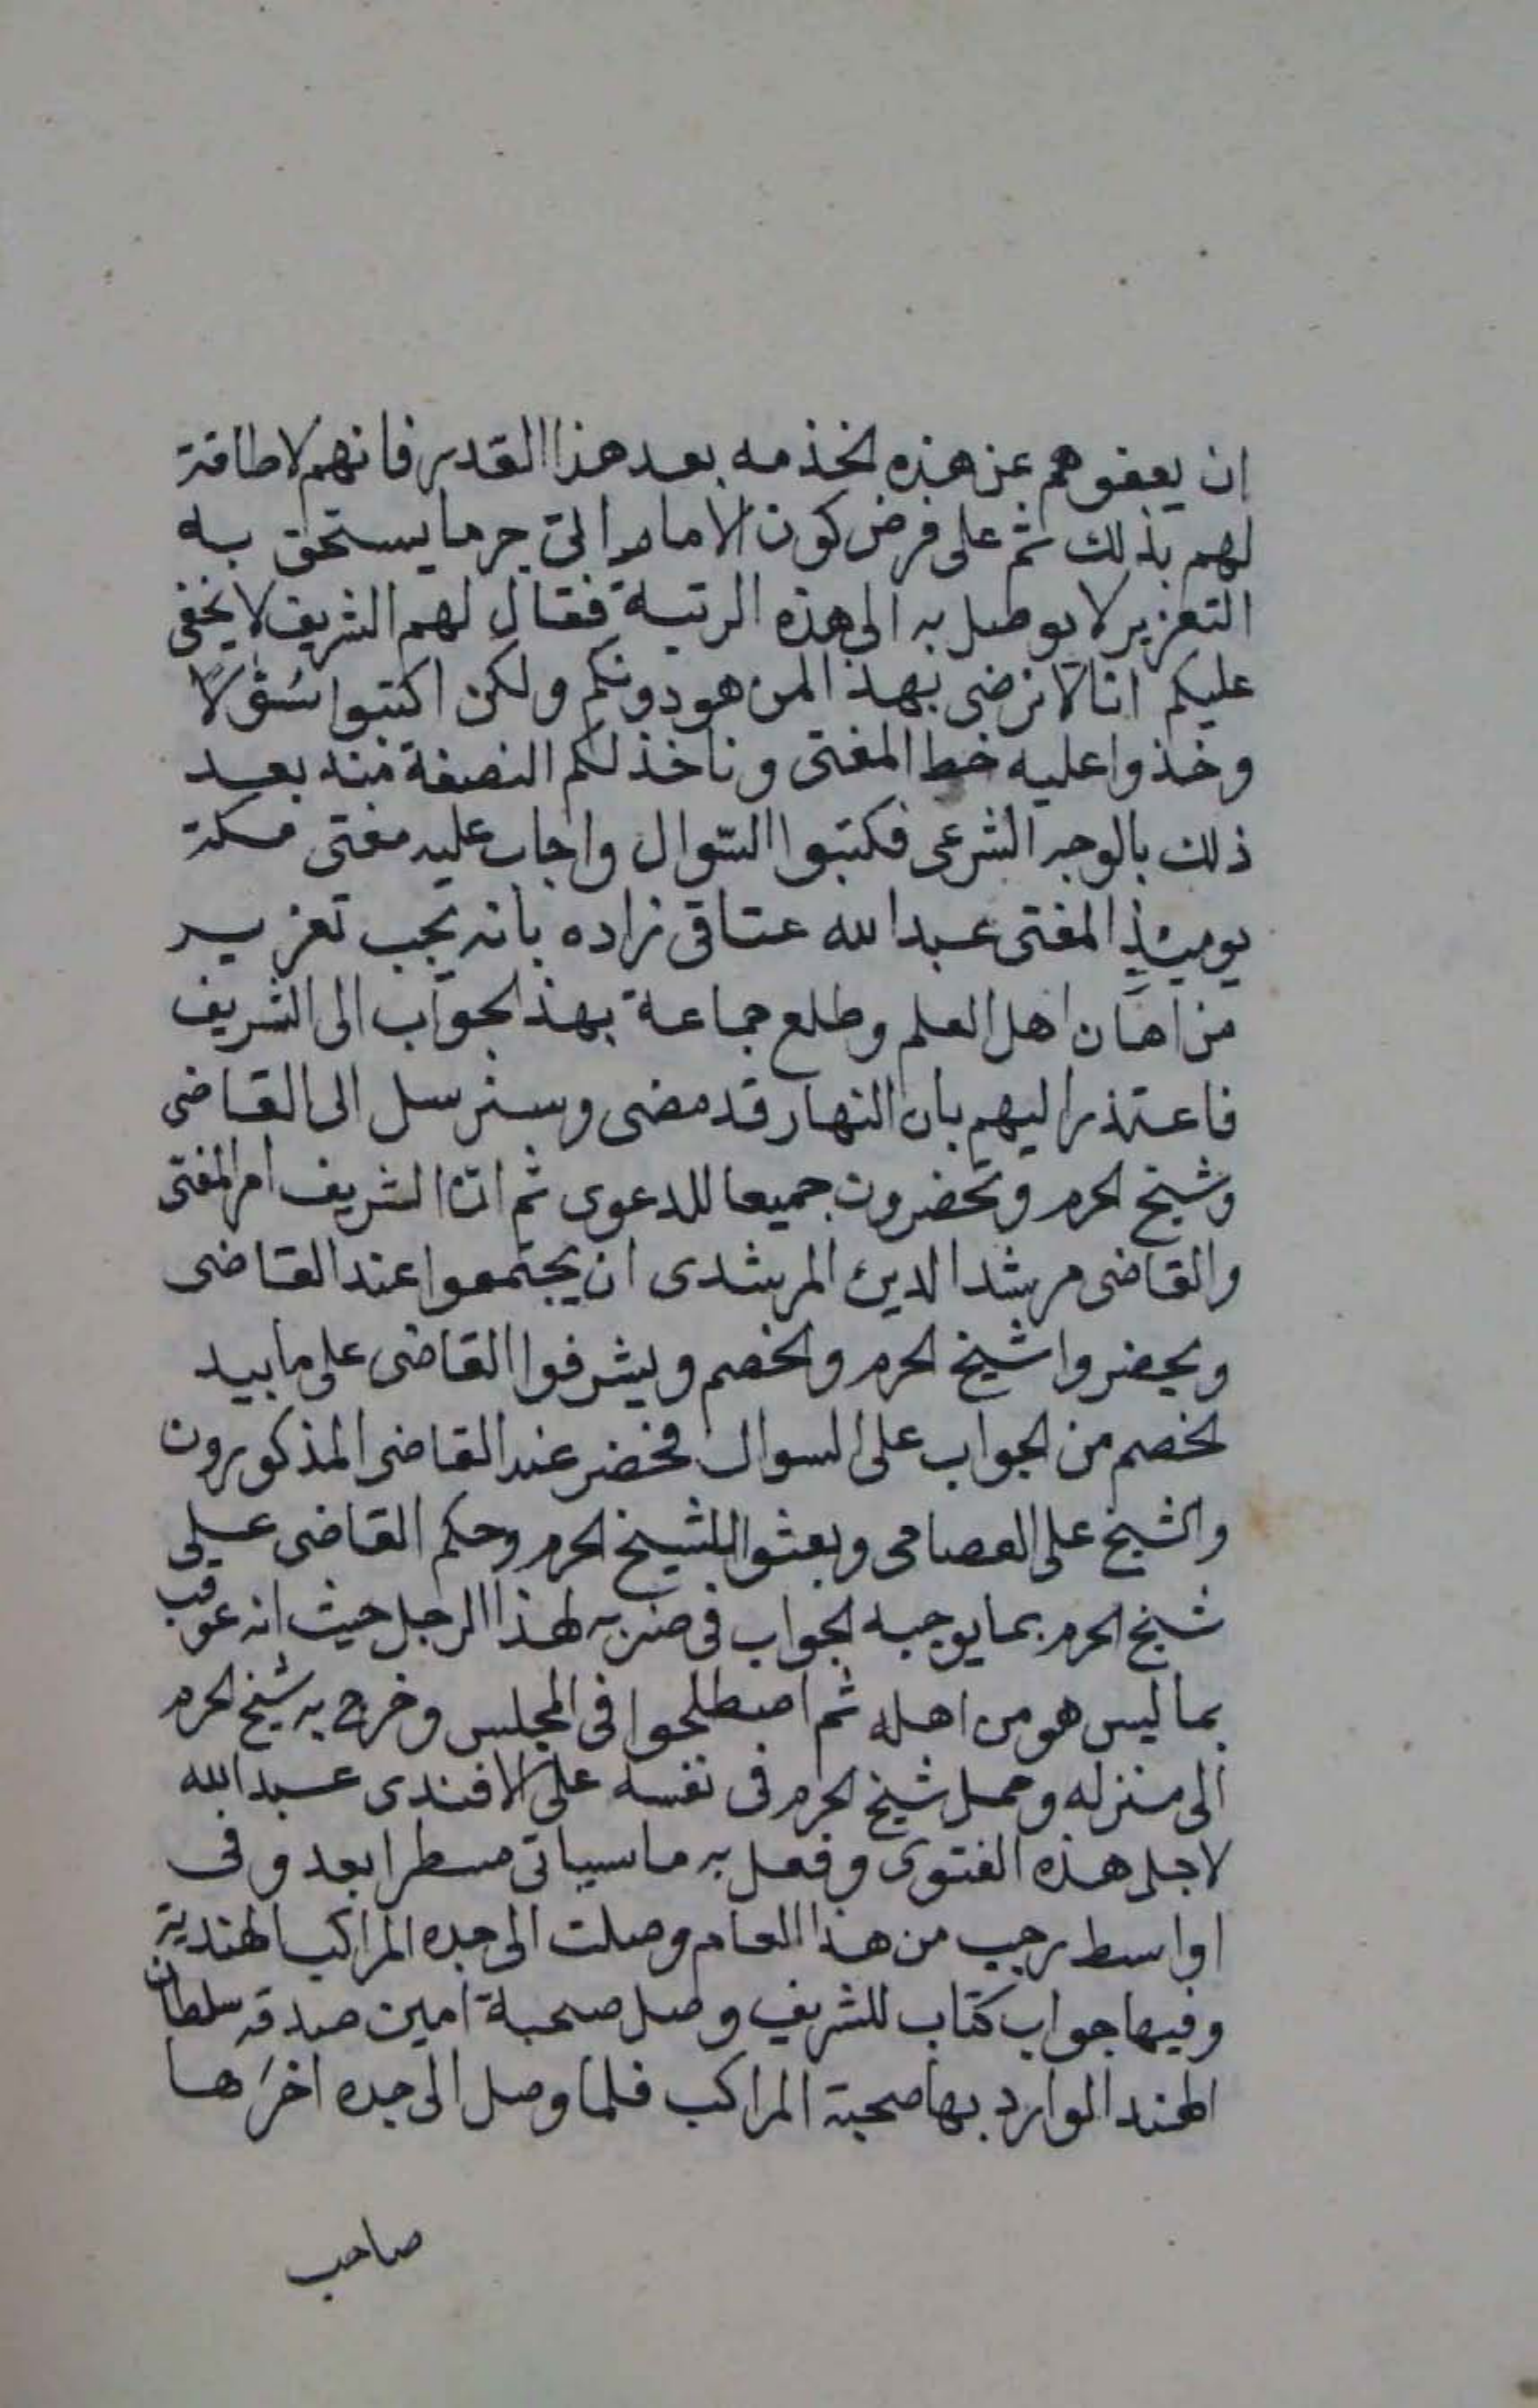 ان يعفوهم عن هذه الخذمه بعد هذا القدر فانهم لا طاقة
لهم بذلك ثم على فرض كون الامام اتى جرما يستحق به
التعزير لا يوصل به الى هذه الرتبة فقال لهم الشريف لا يخفى
عليكم انا لا نرضى بهذا لمن هو دونكم ولكن اكتبوا سُؤلاً
وخذوا عليه خط المفتى وناخذ لكم النصفة منه بعد
ذلك بالوجه الشرعى فكتبوا السّوال واجاب عليه مفتى مكة
يوميئذٍ المفتى عبد الله عتاقى زاده بانه يجب تعزير
من اهان اهل العلم وطلع جماعة بهذ الجواب الى الشريف
فاعتذر اليهم بان النهار قد مضى وسنرسل الى القاضى
وشيخ الحرم وتحضرون جميعا للدعوى ثم انّ الشريف امر المفتى
والقاضى مرشد الدين المرشدى ان يجتمعوا عند القاضى
ويحضروا شيخ الحرم والخصم ويشرفوا القاضى على ما بيد
الخصم من الجواب على السوال فحضر عند القاضى المذكورون
والشيخ على العصامى وبعثوا لشيخ الحرم وحكم القاضى على
شيخ الحرم بما يوجبه الجواب فى ضربه لهذا الرجل حيث انه عوقب
بما ليس هو من اهله ثم اصطلحوا فى المجلس وخرج به شيخ الحرم
الى منزله وحمل شيخ الحرم فى نفسه على الافندى عبد الله
لاجل هذه الفتوى وفعل به ما سياتى مسطرا بعد وفى
اواسط رجب من هذا العام وصلت الى جده المراكب الهندية
وفيها جواب كتاب للشريف وصل صحبة امين صدقه سلطان
الهند الوارد بها صحبة المراكب فلما وصل الى جده اخرَها
صاحب